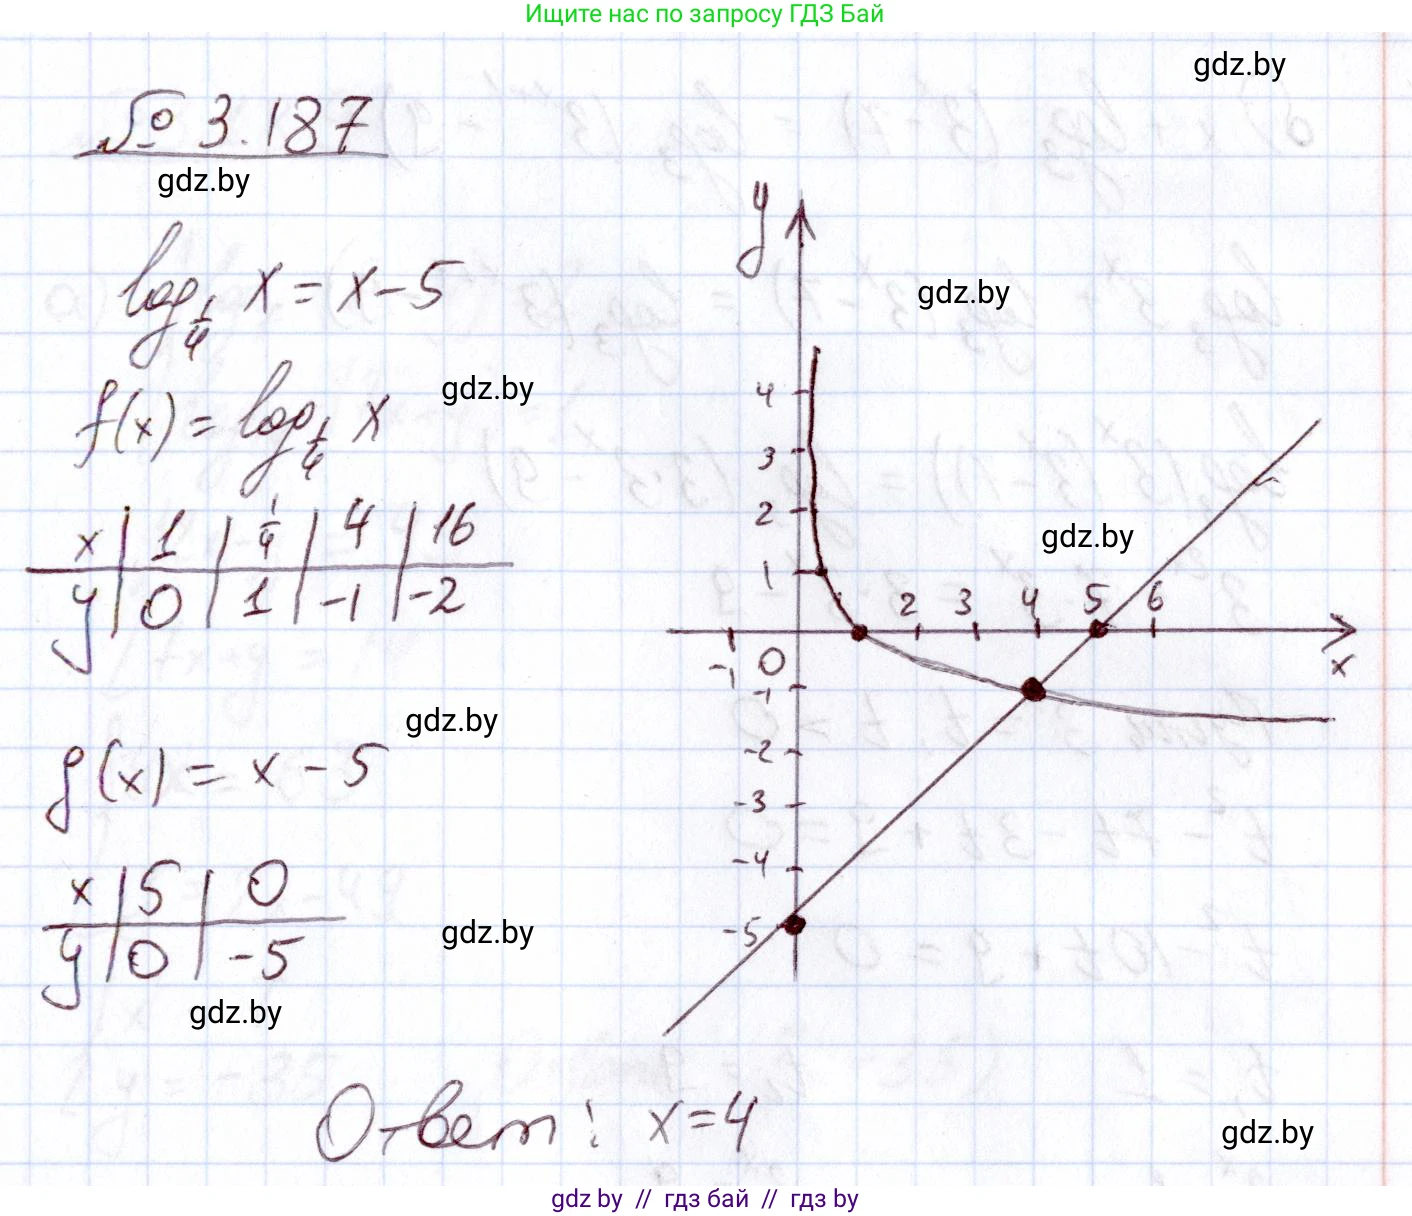 Ищите нас по запросу ГДЗ Бай
gdz.by
№ 3.187
gdz.by
log_{1/4} x = x - 5
gdz.by
f(x) = log_{1/4} x
gdz.by
x | 1 | 1/4 | 4 | 16
y | 0 | 1 | -1 | -2
gdz.by
g(x) = x - 5
x | 5 | 0
y | 0 | -5
gdz.by
gdz.by
y
4
3
2
gdz.by
1
2 3 4 5 6
-1 0 x
-1
-2
-3
-4
-5
Ответ: x = 4
gdz.by
gdz by // гдз бай // гдз by